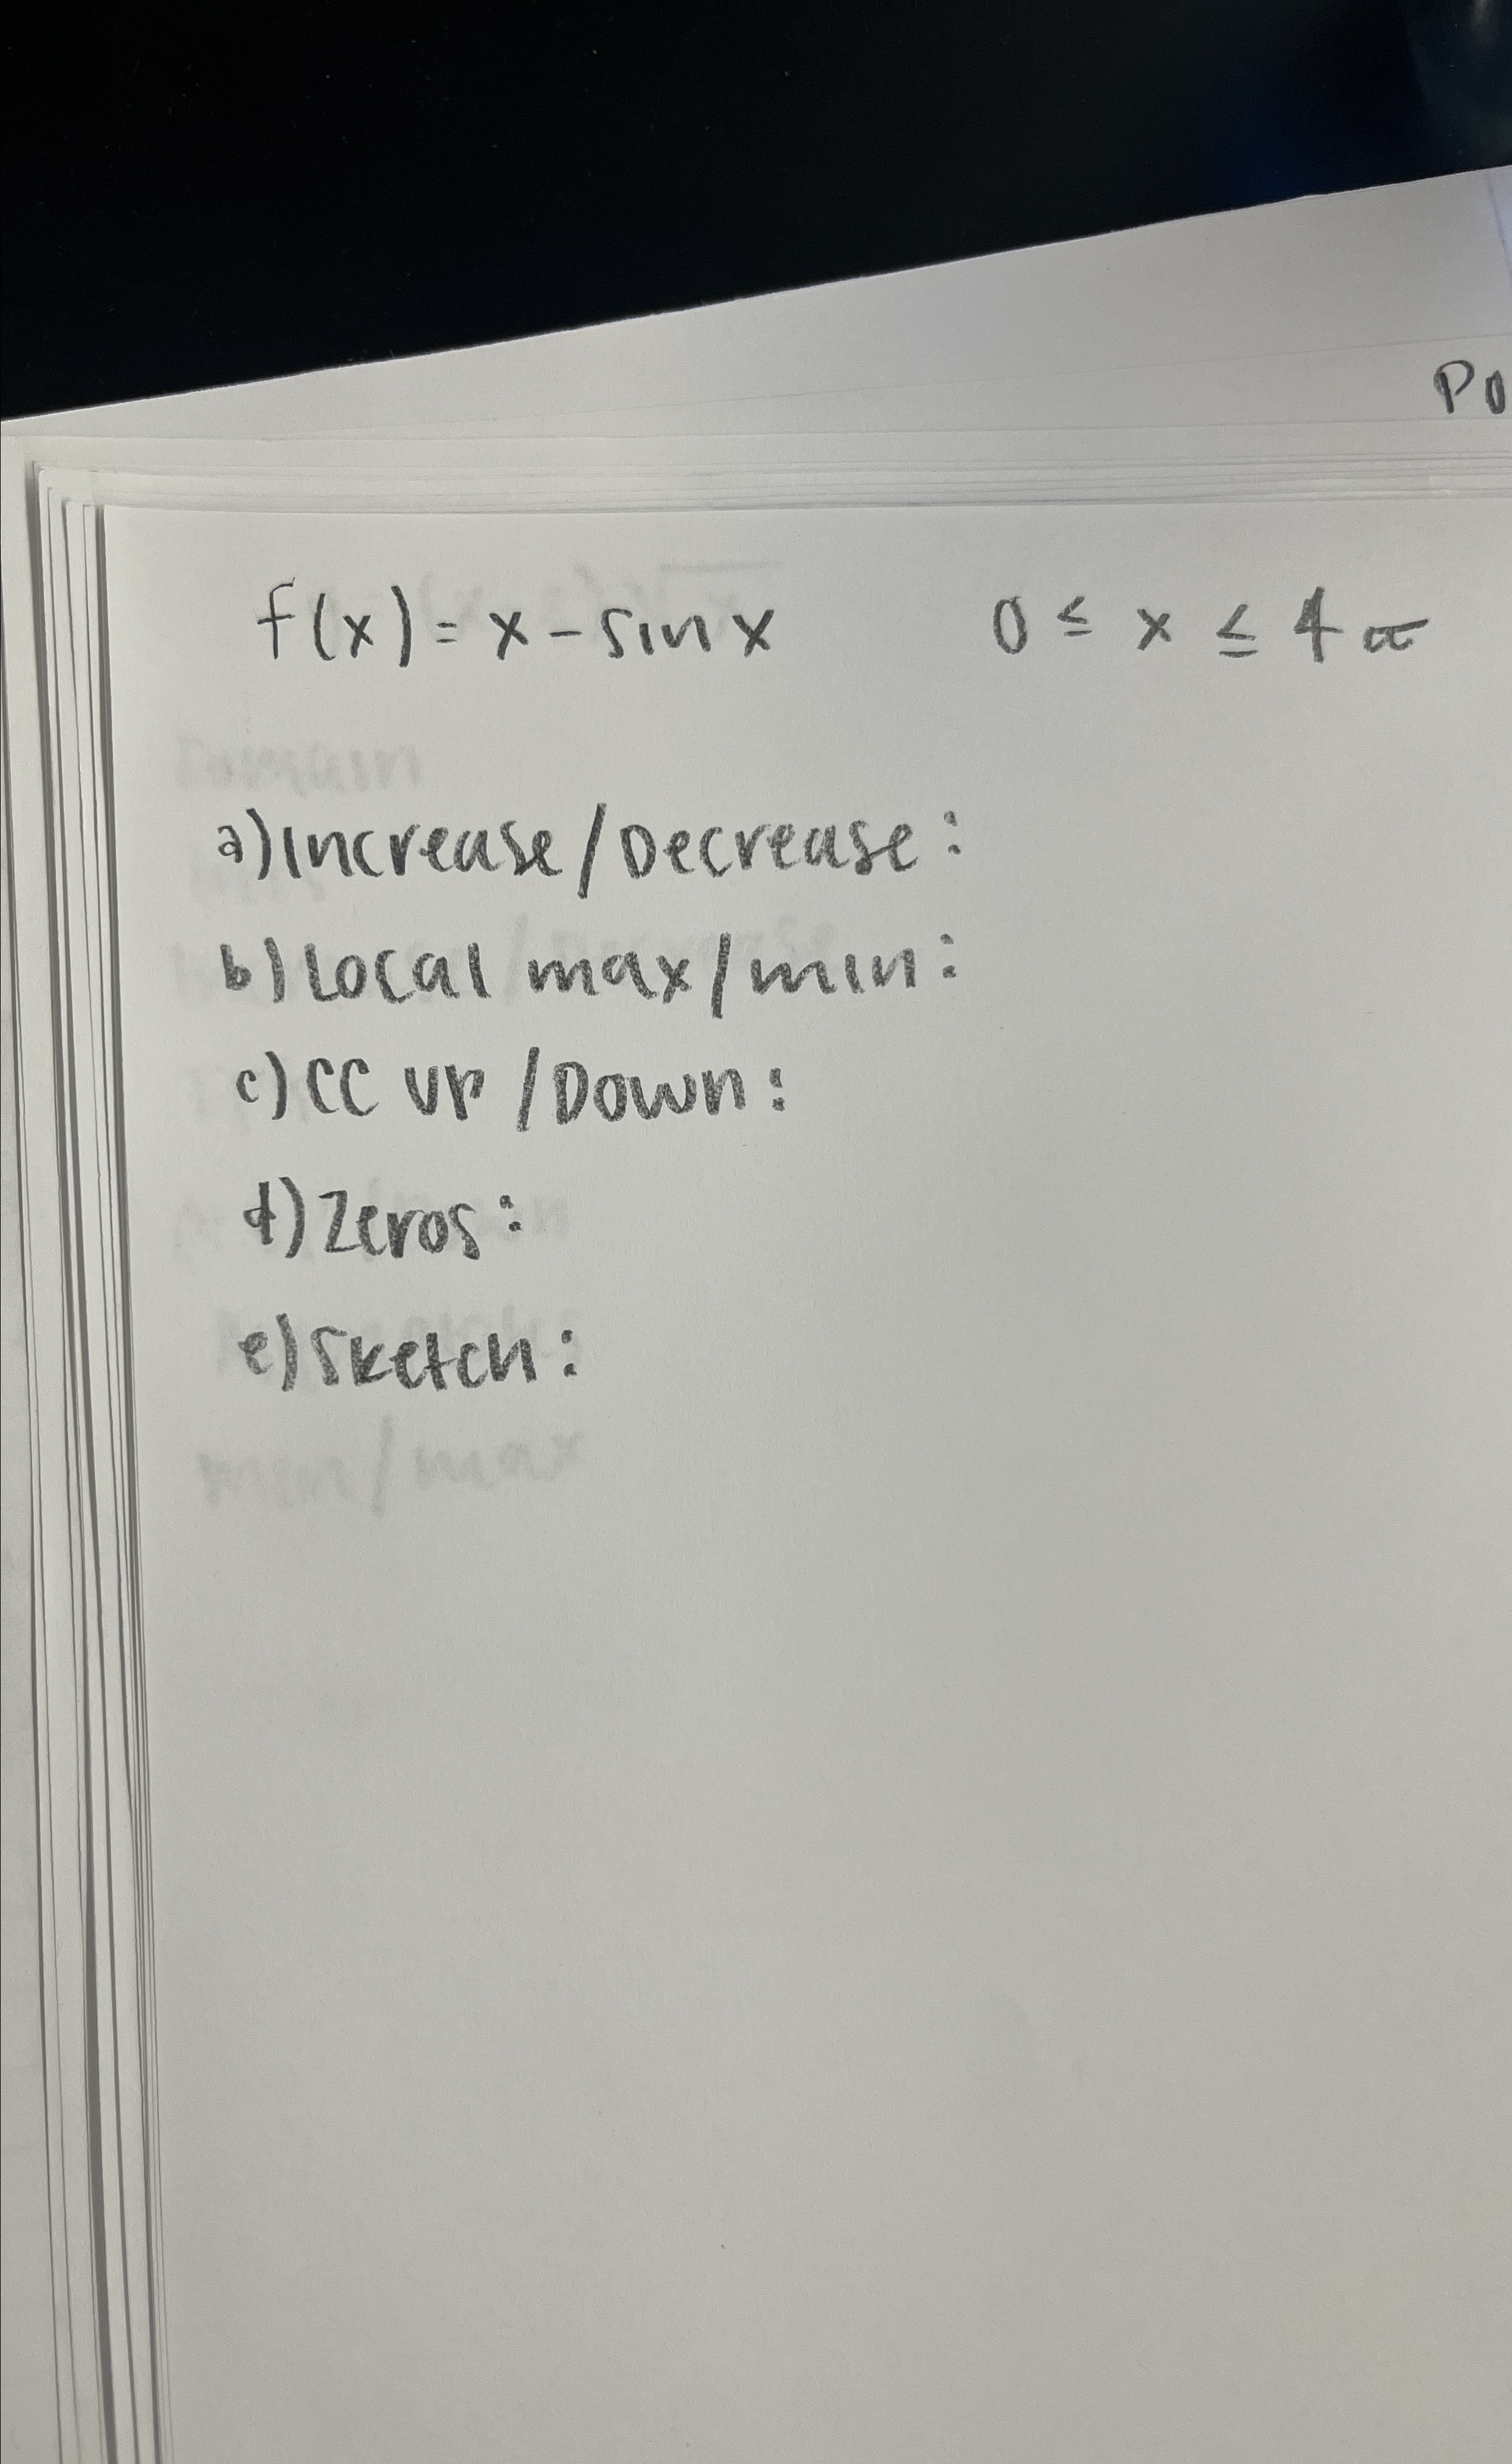 PO
f(x) = x - sin x 0 ≤ x ≤ 4π
Domain
a) Increase/Decrease:
b) Local max/min:
c) CC UP/Down:
d) Zeros:
e) Sketch:
min/max